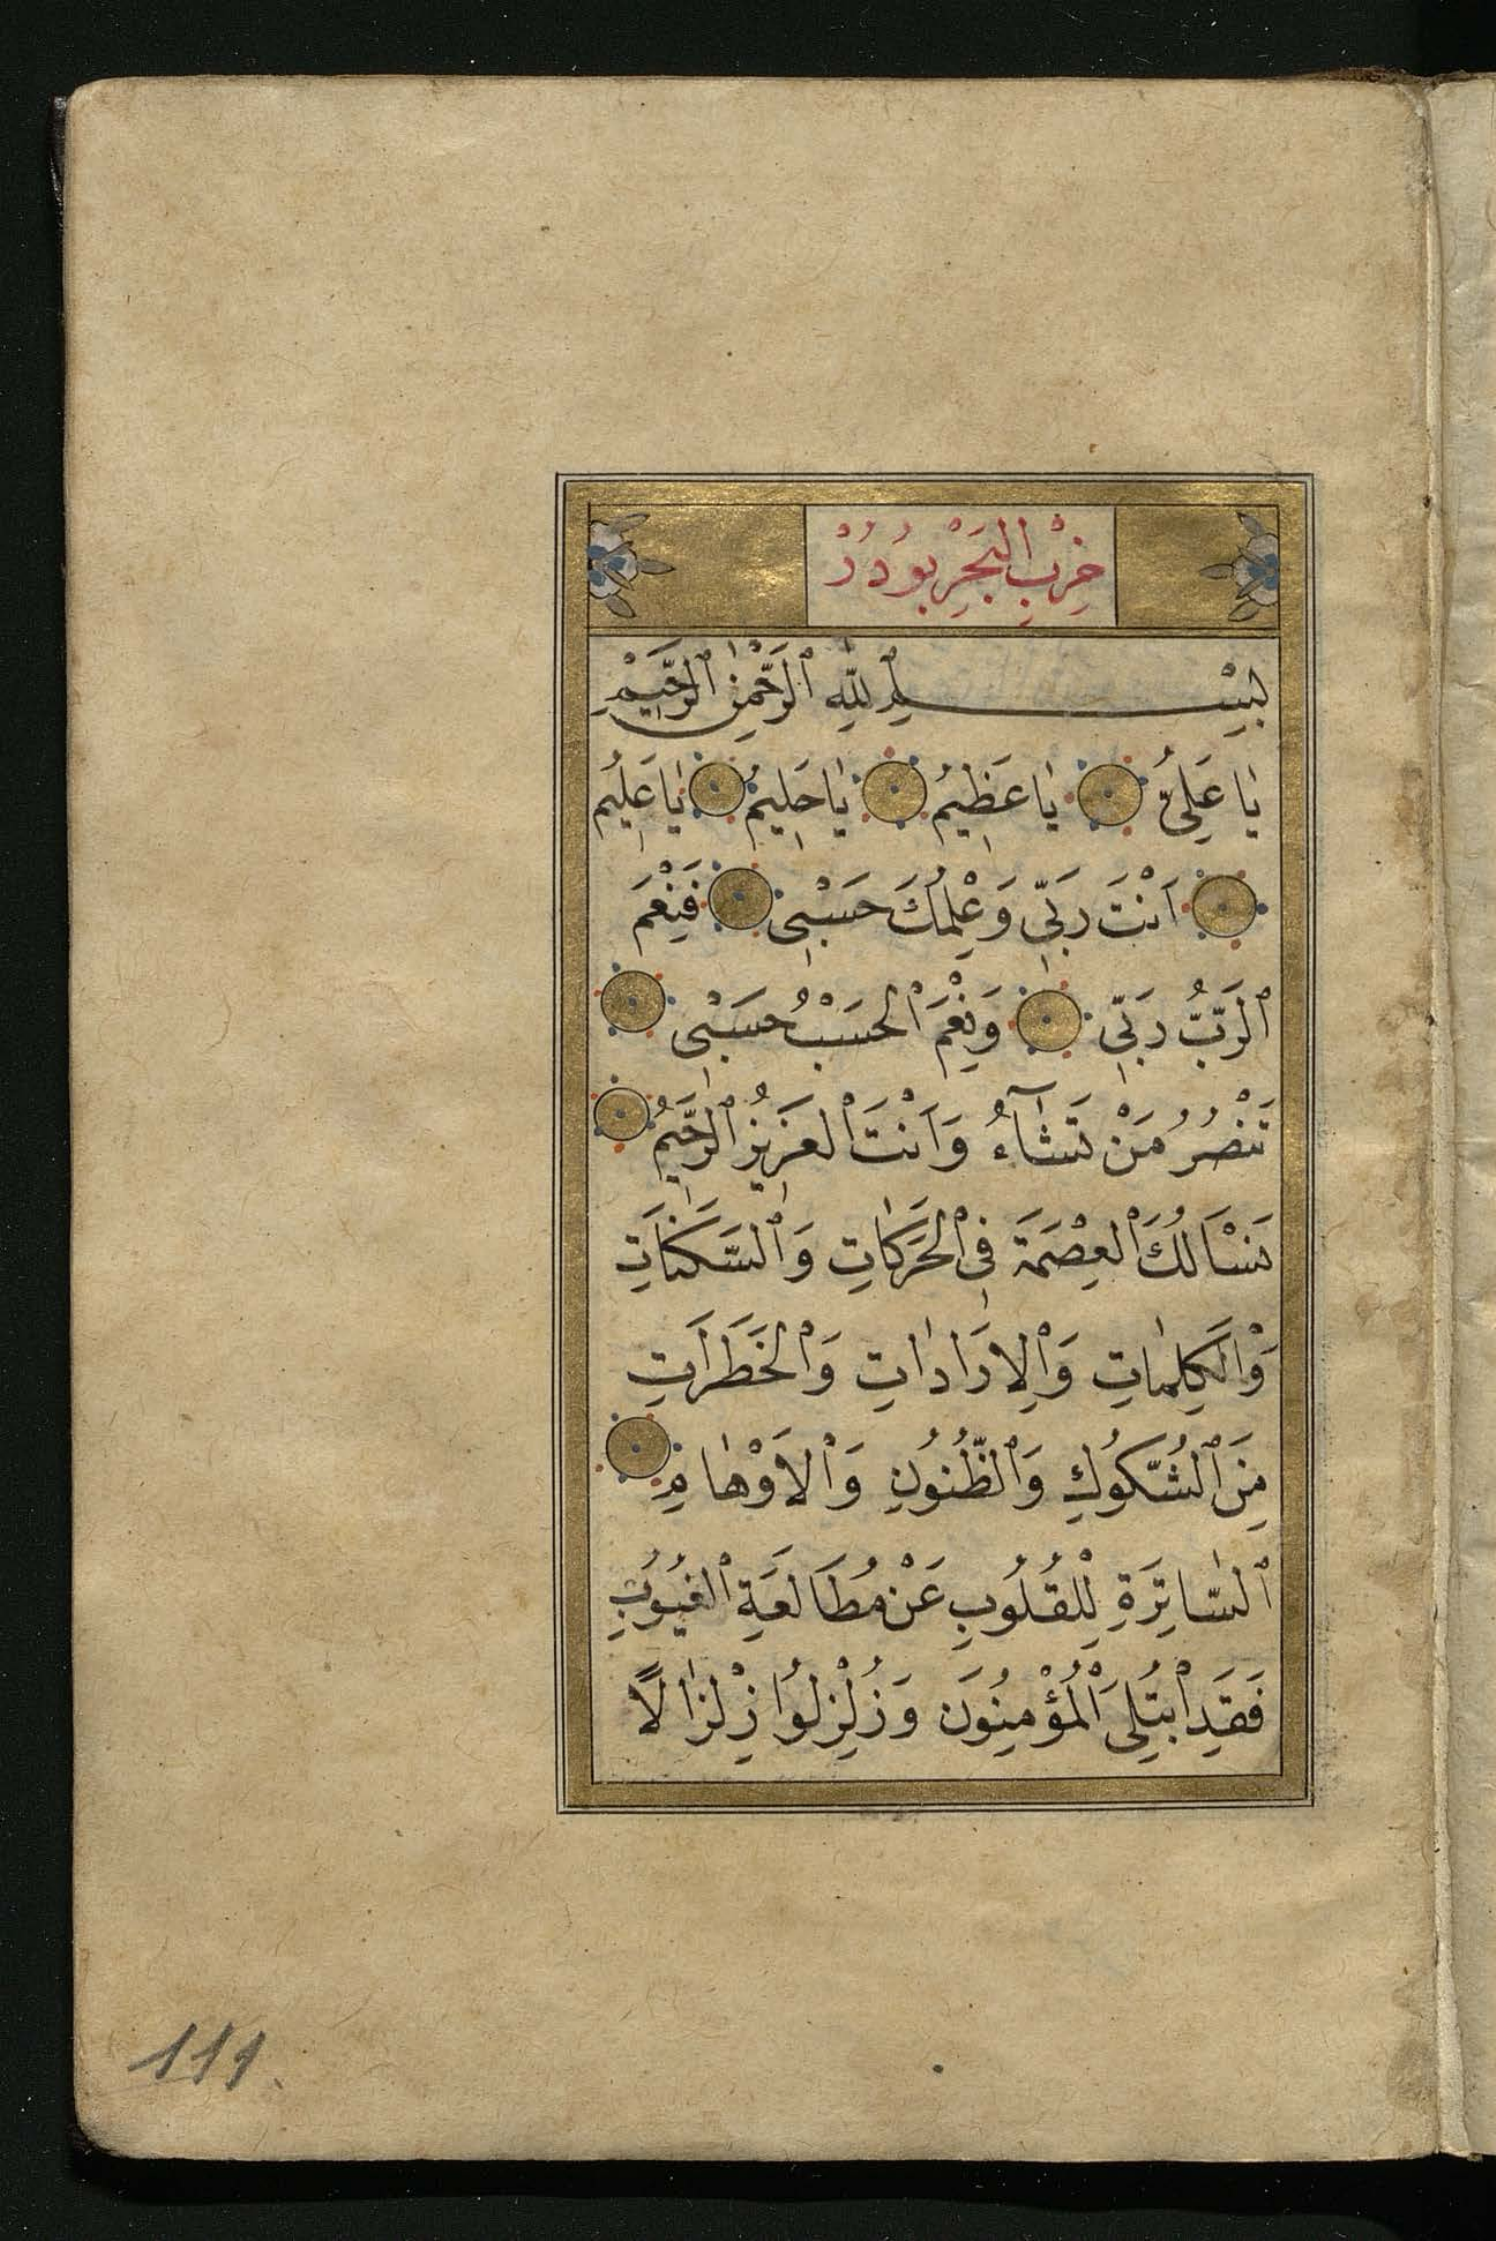 حِزْبُ الْبَحْرِ بُودُرْ
بِسْمِ اللّٰهِ الرَّحْمٰنِ الرَّحِيمِ
يَا عَلِيُّ يَا عَظِيمُ يَا حَلِيمُ يَا عَلِيمُ
اَنْتَ رَبِّي وَعِلْمُكَ حَسْبِي فَنِعْمَ
الرَّبُّ رَبِّي وَنِعْمَ الْحَسْبُ حَسْبِي
تَنْصُرُ مَنْ تَشَآءُ وَاَنْتَ الْعَزِيزُ الرَّحِيمُ
نَسْاَلُكَ الْعِصْمَةَ فِي الْحَرَكَاتِ وَالسَّكَنَاتِ
وَالْكَلِمَاتِ وَالْاِرَادَاتِ وَالْخَطَرَاتِ
مِنَ الشُّكُوكِ وَالظُّنُونِ وَالْاَوْهَامِ
السَّاتِرَةِ لِلْقُلُوبِ عَنْ مُطَالَعَةِ الْغُيُوبِ
فَقَدِ ابْتُلِيَ الْمُؤْمِنُونَ وَزُلْزِلُوا زِلْزَالًا
111.